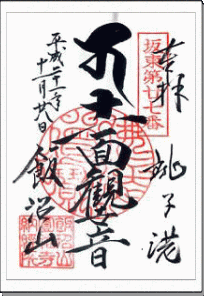 奉拝
銚子港
坂東第廿七番
十一面觀音
平成二十一年
十一月廿八日
飯沼山